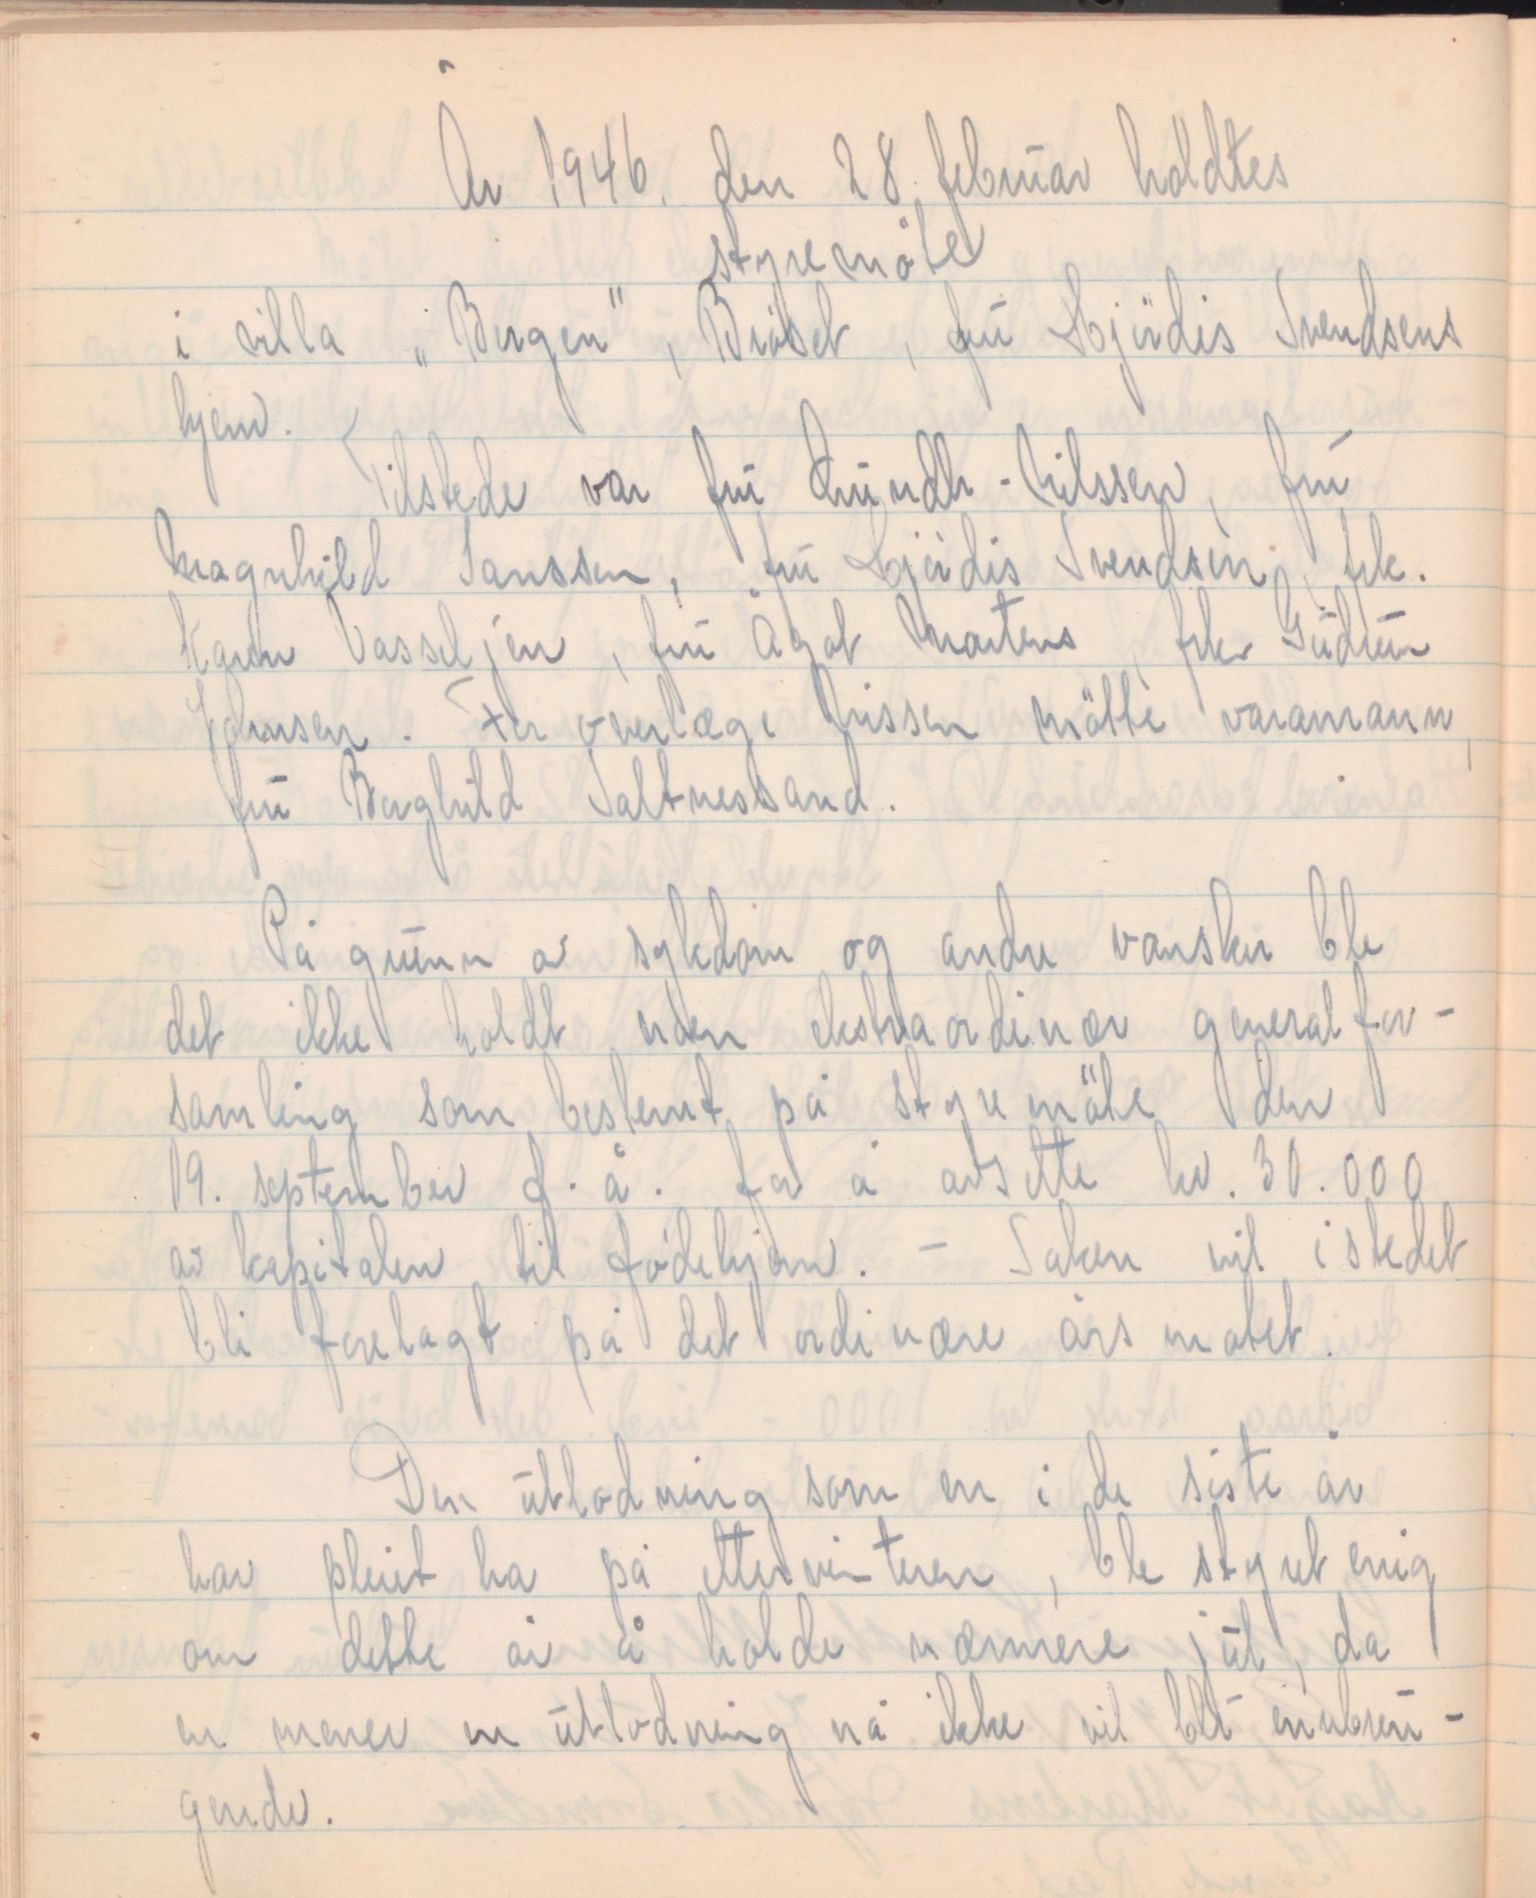 År 1946. den 28. februar holdtes
styremöte
i villa „Bergen", Bröset, fru Hjördis Svendsens
hjem.
Tilstede var fru Rundh-Nilssen, fru
Magnhild Janssen, fru Hjördis Svendsen, frk.
Karen Vasseljen, fru Ågot Martens, frk. Gudrun
Johnsen. For overlæge Nissen mötte varamann,
fru Borghild Saltnessand.
På grunn av sykdom og andre vansker ble
det ikke holdt noen ekstraordinær generalfor-
samling som bestemt på styremöte den
19. september f.å. for å avsette kr. 30.000
av kapitalen til födehjem. – Saken vil istedet
bli forelagt på det ordinære årsmötet.
Den utlodning som en i de siste år
har pleiet ha på ettervinteren, ble styret enig
om dette år å holde nærmere jul, da
en mener en utlodning nå ikke vil bli innbrin-
gende.